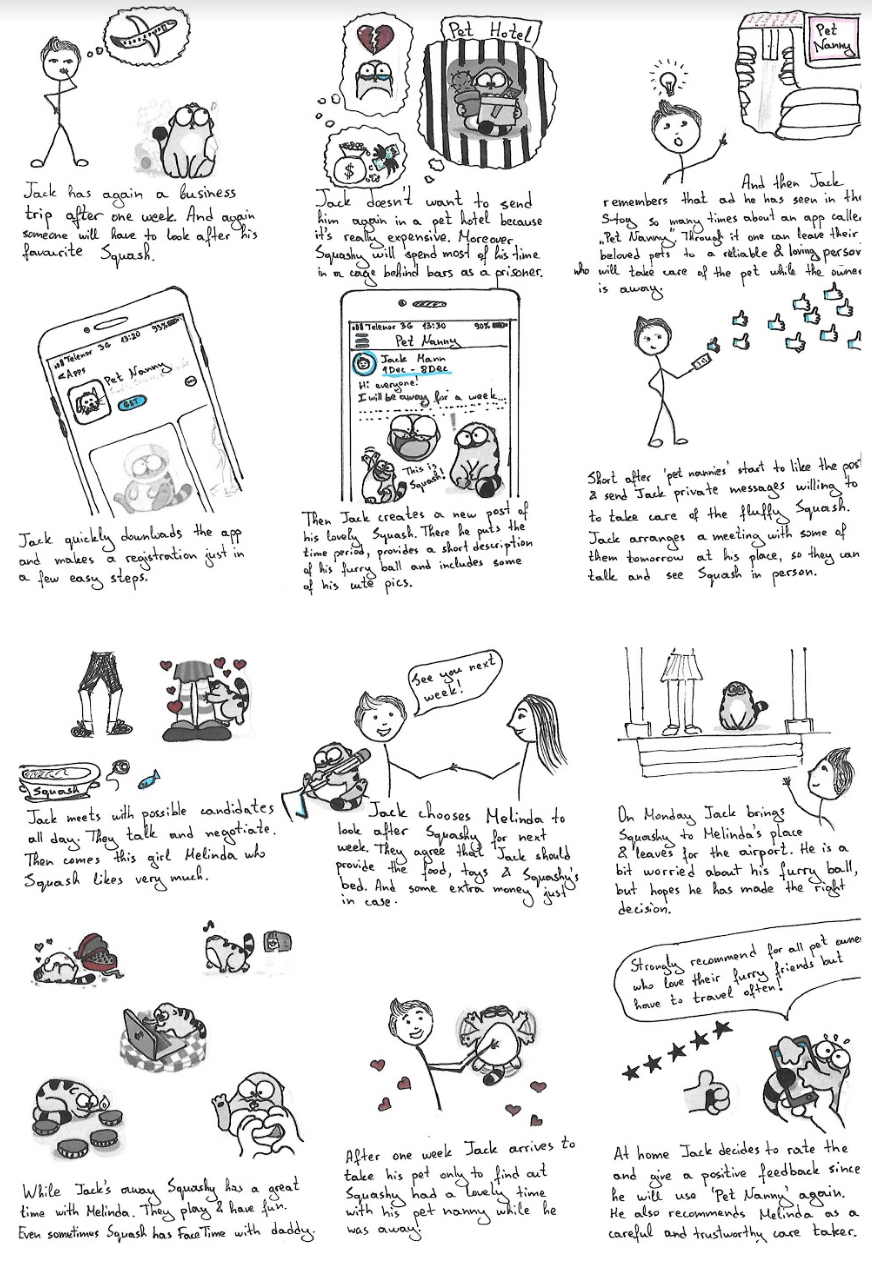 Jack has again a business
trip after one week. And again
someone will have to look after his
favourite Squash.
Pet Hotel
$
Jack doesn't want to send
him again in a pet hotel because
it's really expensive. Moreover
Squashy will spend most of his time
in a cage behind bars as a prisoner.
Pet
Nanny
And then Jack
remembers that ad he has seen in the
S-tog so many times about an app calle
„Pet Nanny". Through it one can leave their
beloved pets to a reliable & loving person
who will take care of the pet while the owner
is away.
Telenor 3G 13:30 93%
<Apps
Pet Nanny
GET
Jack quickly downloads the app
and makes a registration just in
a few easy steps.
Telenor 3G 13:30 90%
Pet Nanny
Jack Mann
1Dec - 8Dec
Hi everyone!
I will be away for a week...
This is
Squash!
Then Jack creates a new post of
his lovely Squash. There he puts the
time period, provides a short description
of his furry ball and includes some
of his cute pics.
Short after 'pet nannies' start to like the post
& send Jack private messages willing to
to take care of the fluffy Squash.
Jack arranges a meeting with some of
them tomorrow at his place, so they can
talk and see Squash in person.
Squash
Jack meets with possible candidates
all day. They talk and negotiate.
Then comes this girl Melinda who
Squash likes very much.
See you next
week!
Jack chooses Melinda to
look after Squashy for next
week. They agree that Jack should
provide the food, toys & Squashy's
bed. And some extra money just
in case.
On Monday Jack brings
Squashy to Melinda's place
& leaves for the airport. He is a
bit worried about his furry ball,
but hopes he has made the right
decision.
While Jack's away Squashy has a great
time with Melinda. They play & have fun.
Even sometimes Squash has FaceTime with daddy.
After one week Jack arrives to
take his pet only to find out
Squashy had a lovely time
with his pet nanny while he
was away.
Strongly recommend for all pet owne
who love their furry friends but
have to travel often!
At home Jack decides to rate the
and give a positive feedback since
he will use 'Pet Nanny' again.
He also recommends Melinda as a
careful and trustworthy care taker.